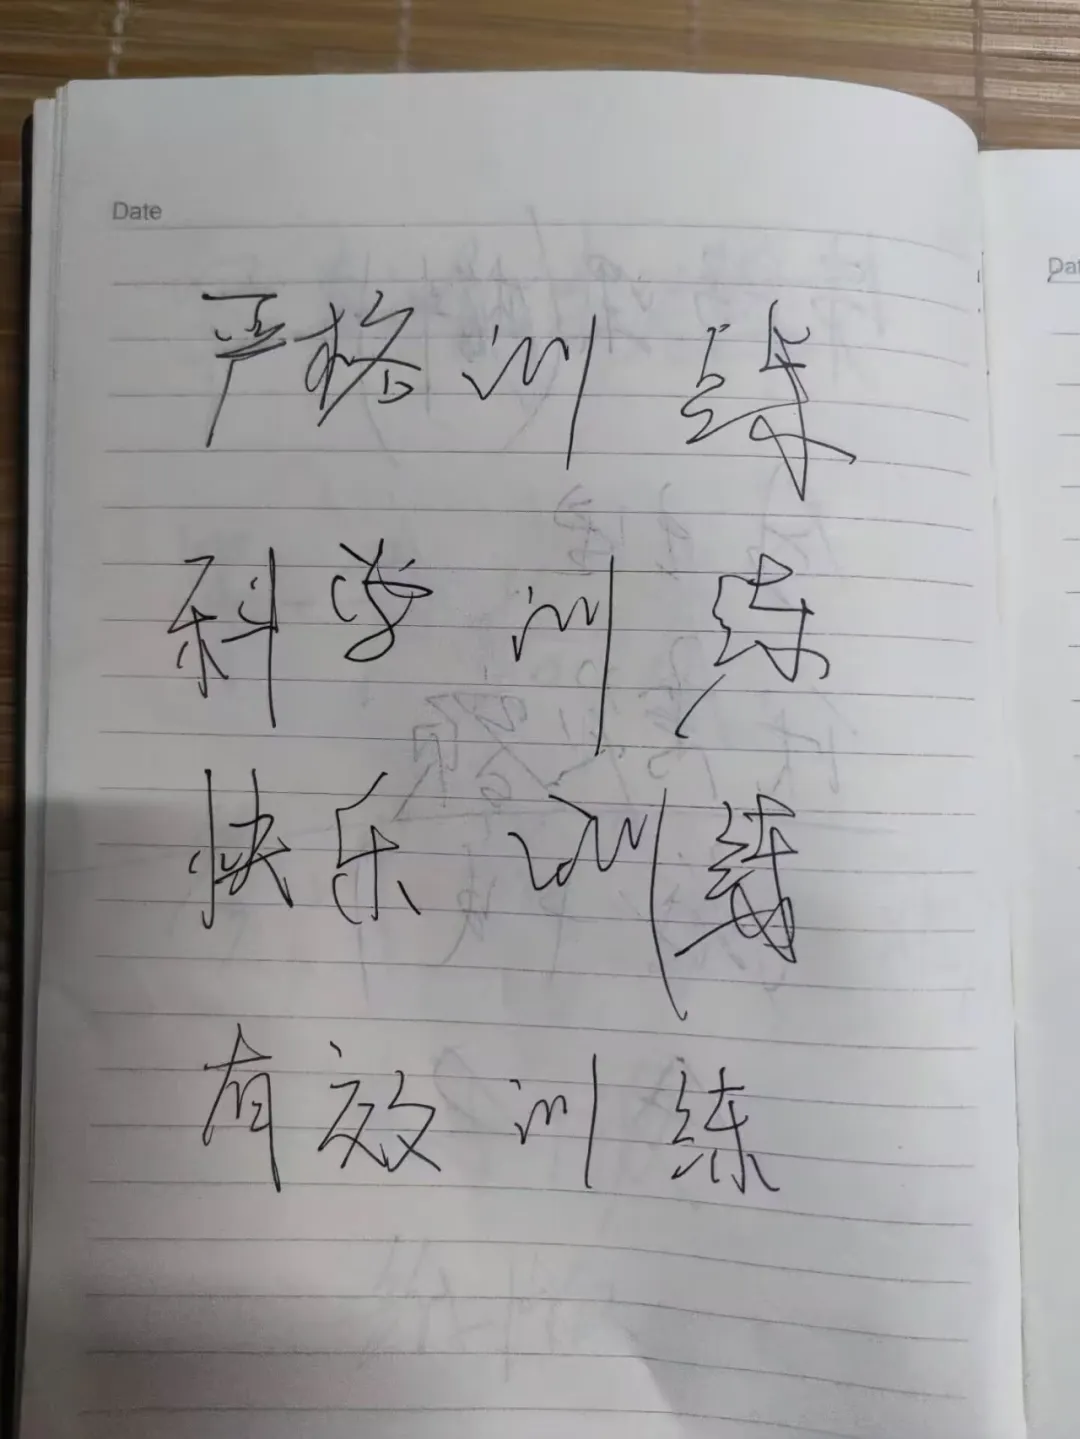 Date
严格训练
科学训练
快乐训练
有效训练